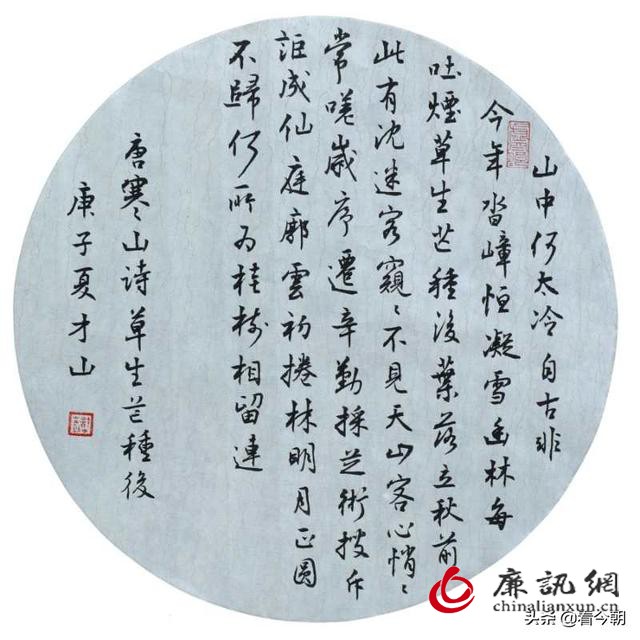 山中何太冷自古非
今年沓嶂恒凝雪幽林每
吐煙草生芒種後葉落立秋前
此有沈迷客窺〻不見天山客心悄〻
常嗟歲序遷辛勤採芝術搜斥
詎成仙庭廓雲初捲林明月正圓
不歸何所為桂樹相留連
唐寒山詩草生芒種後
庚子夏才山
廉訊網
chinalianxun.cn
头条 @看今朝